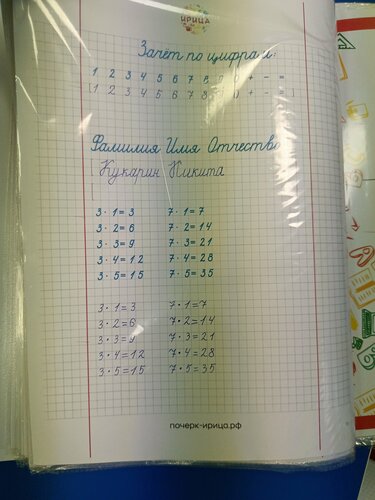 ИРИЦА
Зачёт по цифрам:
1 2 3 4 5 6 7 8 9 0 + - =
1 2 3 4 5 6 7 8 9 0 + - =
Фамилия Имя Отчество
Кукарин Никита
3 · 1 = 3 7 · 1 = 7
3 · 2 = 6 7 · 2 = 14
3 · 3 = 9 7 · 3 = 21
3 · 4 = 12 7 · 4 = 28
3 · 5 = 15 7 · 5 = 35
3 · 1 = 3 7 · 1 = 7
3 · 2 = 6 7 · 2 = 14
3 · 3 = 9 7 · 3 = 21
3 · 4 = 12 7 · 4 = 28
3 · 5 = 15 7 · 5 = 35
почерк-ирица.рф